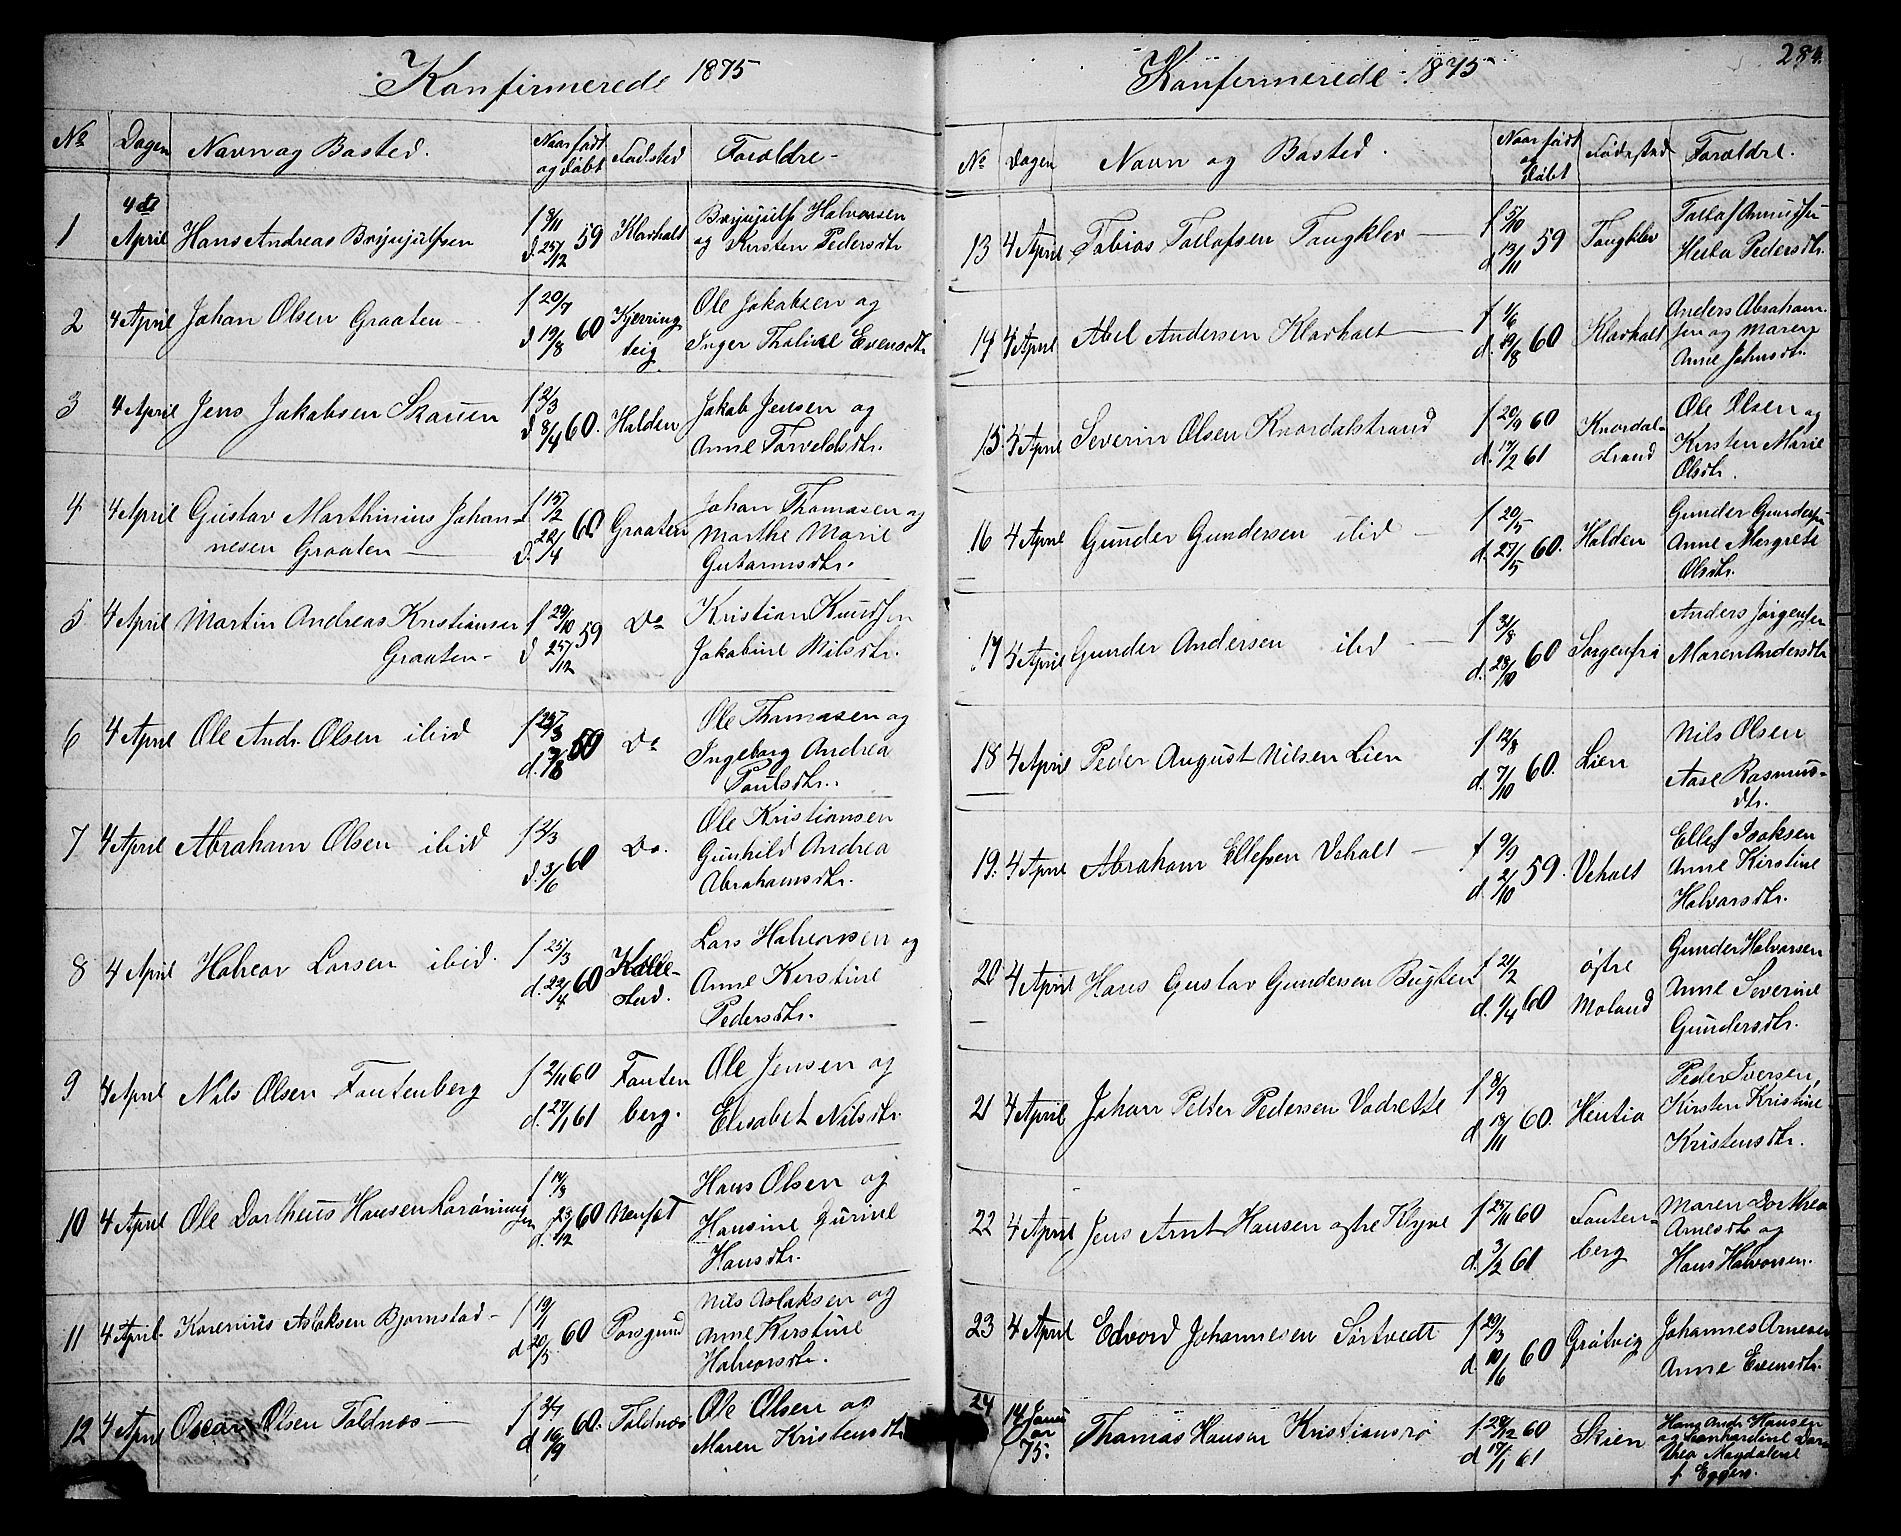 Konfirmerede 1875
No Dagen Navn og Bosted. Naar født og døbt Fødsted Foroldre
1 4de April Hans Andreas Brynjulfsen f 8/11 d. 25/12 59 Klovholt Brynjulf Halvorsen
og Kirsten Pedersdtr
2 4 April Johan Olsen Graaten f 20/7 d 19/8 60 Kjerring teig Ole Jakobsen og
Inger Thaline Evensdtr
3 4 April Jens Jakobsen Skauen f 2/3 d 8/4 60. Halden Jakob Jensen og
Anne Torveldsdtr.
4 4 April Gustav Marthinius Johan-
nesen Graaten f 15/2 d. 22/4 60 Graaten Johan Thomasen og
Marthe Marie
5 4 April Martin Andreas Kristiansen
Graaten f 29/10 d 25/12 59 Do Kristian Knudsen
Jakobine Nilsdtr.
6 4 April Ole Andr. Olsen ibid f 25/3 Do Ole Thomasen og
Ingeborg Andrea
Poulsdtr.
7 4 April Abraham Olsen ibid f 2/3 d. 3/6 60 Do. Ole Kristiansen
Gunhild Andrea
Abrahamsdtr.
8 4 April Halvor Larsen ibid. f 25/3 d. 22/4 60 Lars Halvorsen og
Anne Kirstine
Pedersdtr.
9 4 April Nils Olsen Foutenberg f 2/11 60 d. 27/1 61 Fouten berg. Ole Jensen og
Elisabet Nilsdtr.
10 4 April Ole Dortheus Hansen f 14/8 d. 23/12 60 Hans Olsen og
Hansine Gurine
Hansdtr.
11 4 April Korenius Aslaksen Bjørnstad f 19/1 d 20/5 60 Porsgrund Nils Aslaksen og
Anne Kirstine
Halvorsdtr.
12 4 April Oscar Olsen Foldnøs f 3/7 d 16/9 60. Foldnøs Ole Olsen og
Maren Kristensdtr
Konfirmerede 1875
284.
No Dagen Navn og Bosted. Naar født og døbt Fødested Foroldre.
13 4 April Tobias Tollofsen Tougklev f 5/10 d 13/11 59 Tougklev Tollof Amundsen
Pedersdtr.
14 4 April Abel Andersen Klovholt f 1/6 d. 29/8 60 Klovholt Anders Abraham-
sen og Maren
Anne Johnsdtr.
15 4 April Severin Olsen Knardalstrand f 20/9 60 d. 17/2 61 Knardal- strand Ole Olsen og
Kirsten Marie
Olsdtr.
16 4 April Gunder Gundersen ibid f 20/5 d. 27/5 60. Halden Gunder Gundersen
Anne Margrete
Olsdtr.
17 4 April Gunder Andersen ibid f 31/8 d. 28/10 60 Sorgenfri Anders Jørgensen
Maren Andersdtr
18 4 April Peder August Nilsen Lien f 12/8 d. 7/10 60. Lien Nils Olsen
Aase Rasmus-
dtr.
19. 4 April Abraham Ellefsen Veholt f 9/9 d. 2/10 59. Veholt Ellef Isaksen
Anne Kirstine
Halvorsdtr.
20 4 April Hans Gustav Gundersen Bugten f 21/2 d. 1/4 60 østre Moland Gunder Halvorsen
Anne Severine
Gundersdtr.
21 4 April Johan Petter Pedersen Vadrette f 8/9 d 17/11 60. Hentia Peder Iversen,
Kirsten Kristine
Kristensdtr.
22 4 April Jens Arnt Hansen østre Klyve f 25/11 60 d. 3/2 61 Fouten- berg Maren Dorthea
Arnesdtr og
Hans Halvorsen.
23 4 April Edvord Johannesen Sortvedt f 29/3 d. 10/6 60 Grøtvig Johannes Arnesen
Anne Evensdtr.
24 14 Janu ar 75. Thomas Hansen Kristiansrø f. 28/12 60 d 17/1 61 Skien Hans Andr. Hansen
og Leonhardine Doro
thea Magdalene
f Eggers.